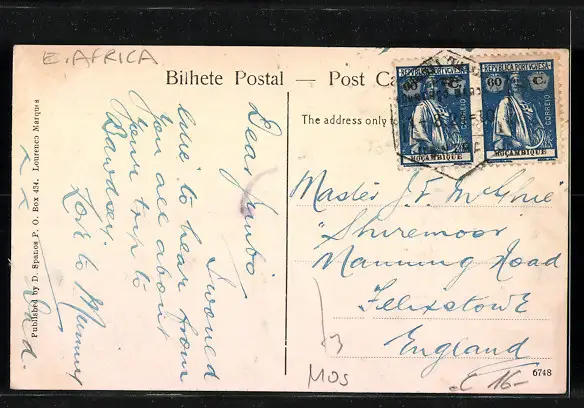 E. AFRICA
Bilhete Postal — Post Ca
The address only to
REPUBLICA PORTUGUESA
60 C.
CORREIO
MOÇAMBIQUE
REPUBLICA PORTUGUESA
60 C.
CORREIO
MOÇAMBIQUE
Published by D. Spanos P. O. Box 434. Lourenco Marques
Dear Jumbo
I would
like to hear from
you all about
your trip to
Bawdsey.
Love to Mummy
x x Dad.
Master J. F. McGhie
"Shiremoor
Manning Road
Felixstowe
England
MOS
£ 16-
6748